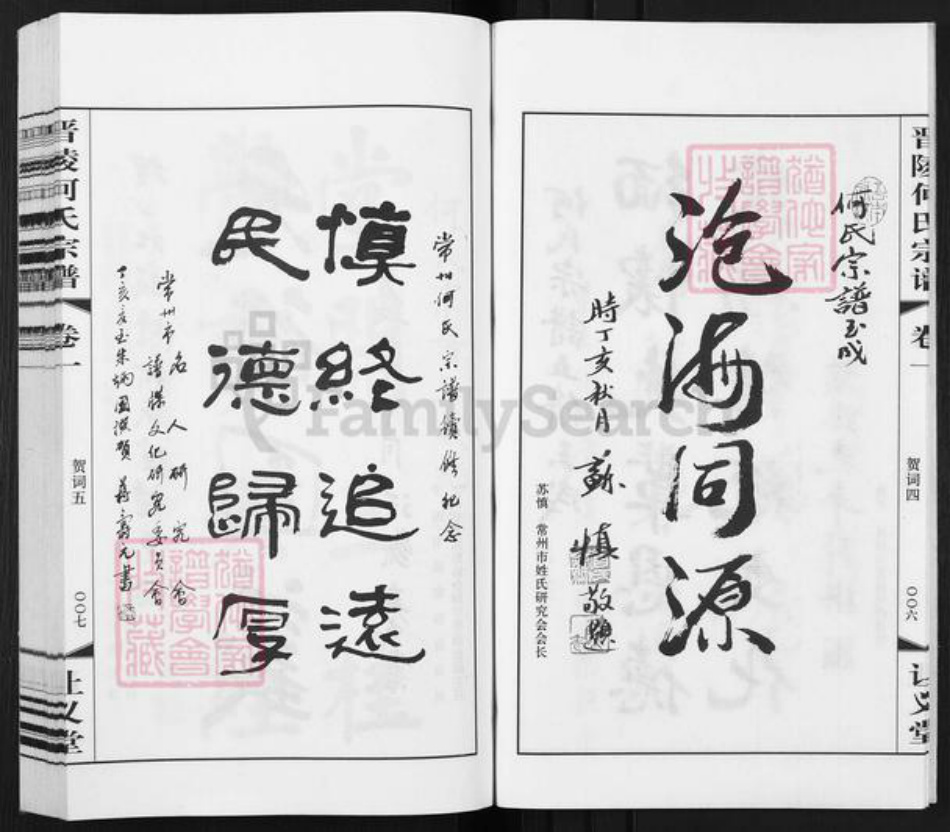 晋陵何氏宗谱
卷一
贺词四
〇〇六
让义堂
何氏宗譜玉成
沧海同源
時丁亥秋月
蘇慎敬題
苏慎 常州市姓氏研究会会长
常州何氏宗譜續修纪念
慎終追遠
民德歸厚
常州市名人研究会
譜牒文化研究委员會
丁亥
朱炳国撰
書
晋陵何氏宗谱
卷一
贺词五
〇〇七
让义堂
譜學會
FamilySearch